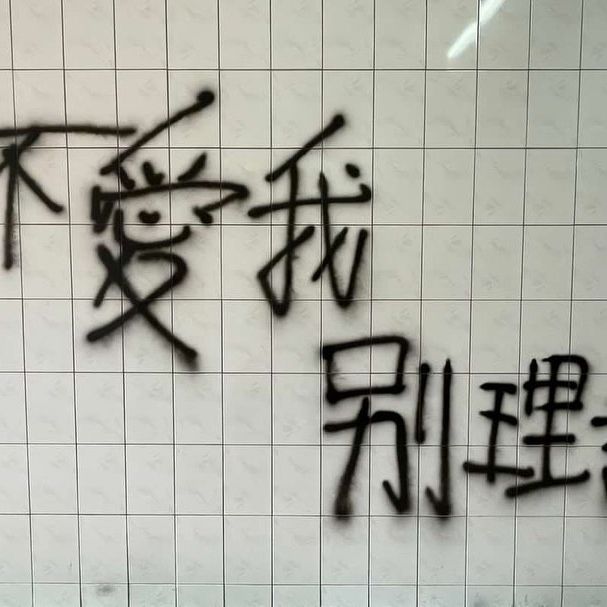 不愛我
别理